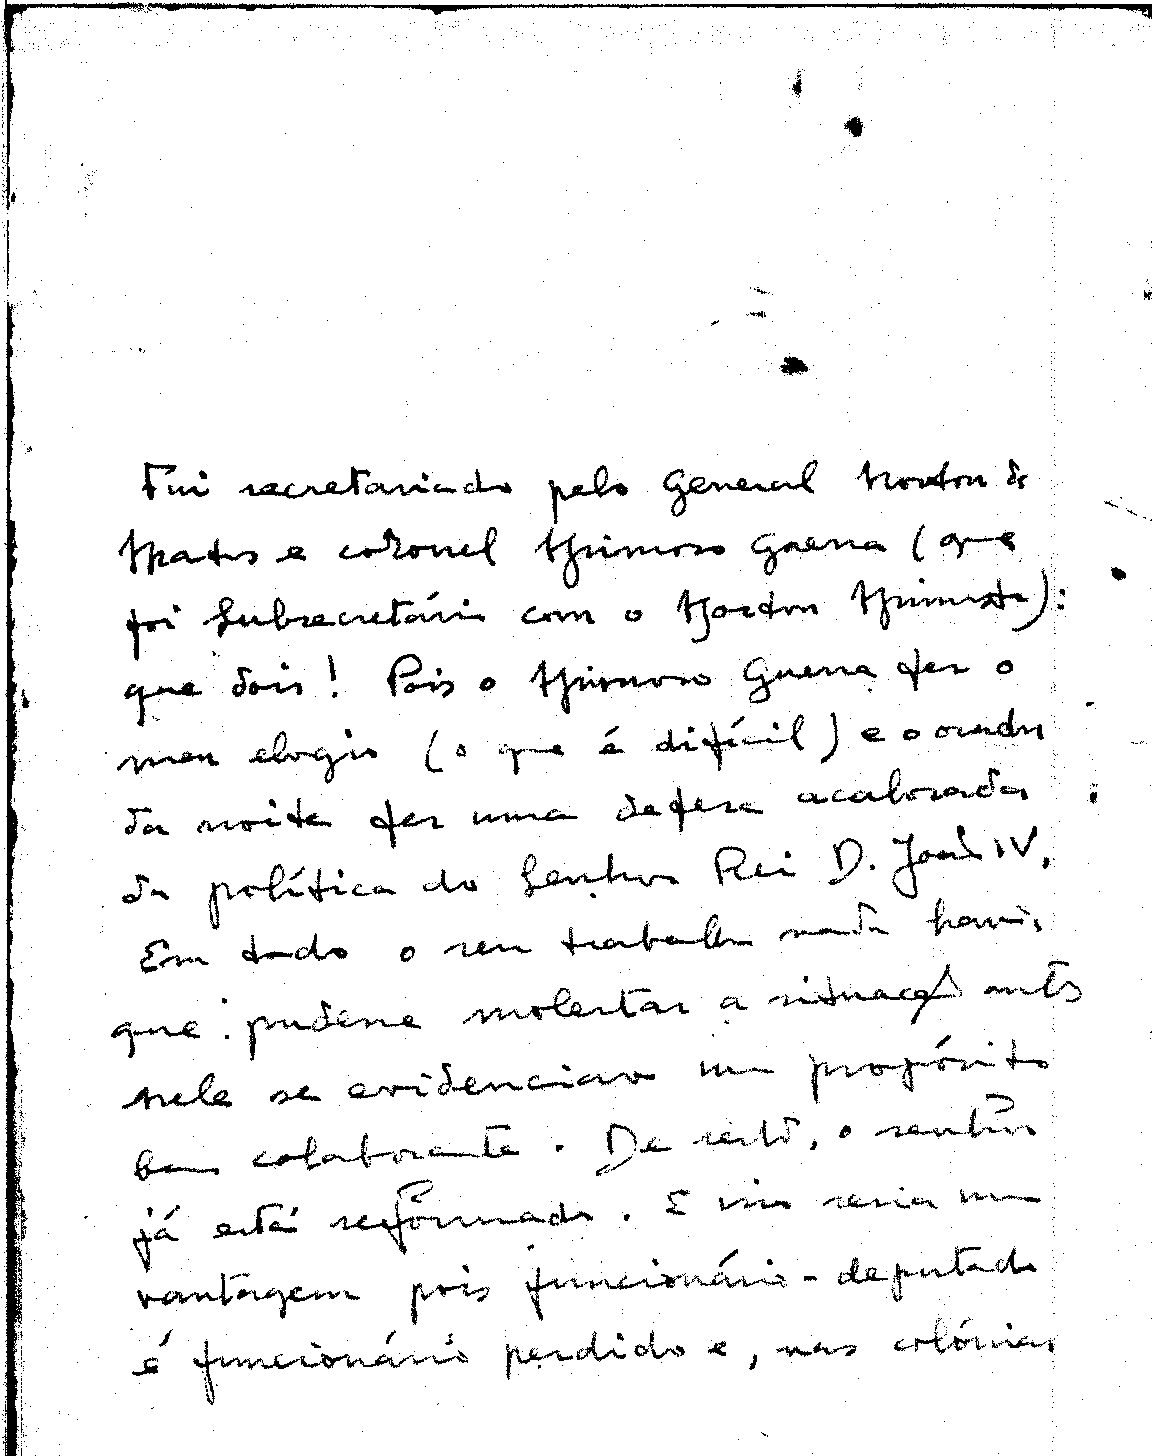 Fui secretariado pelo General Norton de
Matos e coronel Mimoso Guerra (que
foi Subsecretário com o Norton Ministro):
que dois! Pois o Mimoso Guerra fez o
meu elogio (o que é difícil) e o orador
da noite fez uma defesa acalorada
da política do Senhor Rei D. João IV.
Em todo o seu trabalho nada havia
que pudesse molestar a situação antes
nele se evidenciava um propósito
bem colaborante. De resto, o senhor
já está reformado. E isso seria uma
vantagem pois funcionário-deputado
é funcionário perdido e, nas colónias